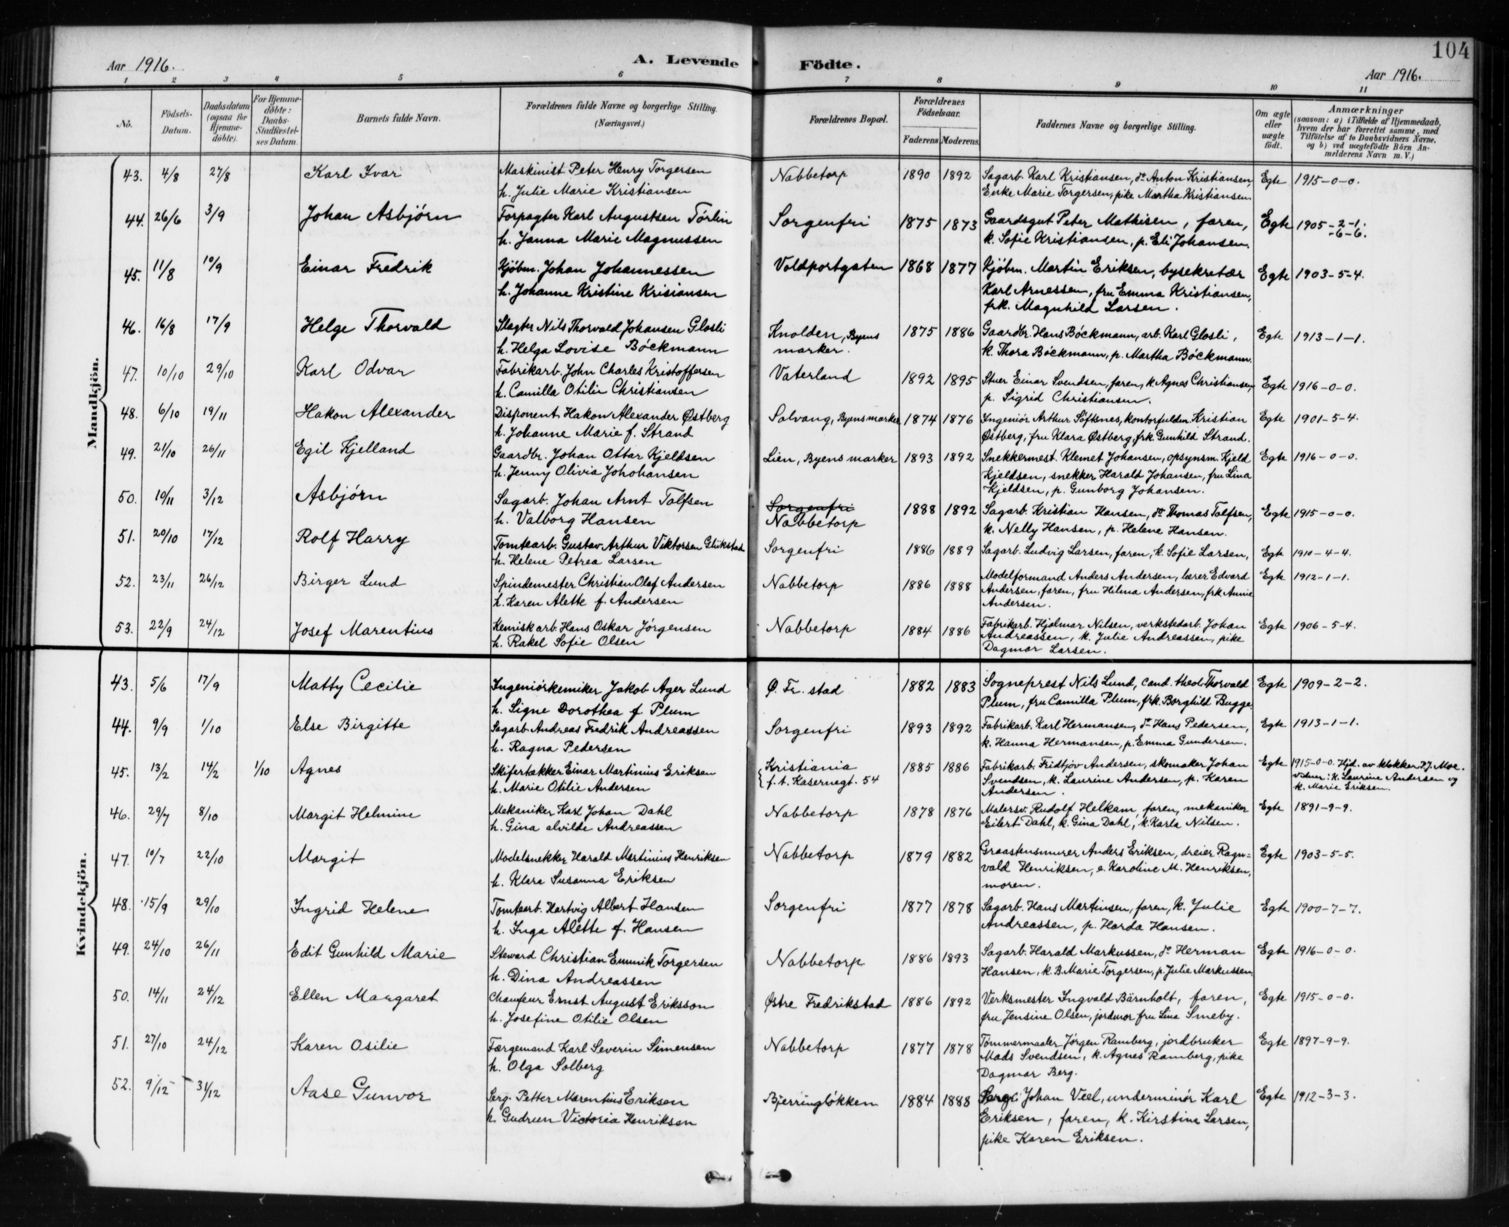 104
Aar 1916.
A. Levende
Fødte.
Aar 1916.
1 2 3 4 5 6 7 8 9 10 11
No.
Fødsels-Datum.
Daabsdatum (ogsaa for Hjemmedøbte).
For Hjemmedøbte: Daabs-Stadfæstelses Datum.
Barnets fulde Navn.
Forældrenes fulde Navne og borgerlige Stilling. (Næringsvei.)
Forældrenes Bopæl.
Forældrenes Fødselsaar.
Faderens Moderens.
Faddernes Navne og borgerlige Stilling.
Om ægte eller uægte født.
Anmærkninger
(saasom: a) i Tilfælde af Hjemmedaab, hvem der har forrettet samme, med Tilføielse af to Daabsvidners Navne, og b) ved uægtefødte Børn Anmelderens Navn m. V.)
Mandkjøn.
43. 4/8 27/8 Karl Ivar Maskinist Peter Henry Torgersen Nabbetorp 1890 1892 Sagarb. Karl Kristiansen, do Anton Kristiansen, Egte 1915-0-0.
h. Julie Marie Kristiansen Enke Marie Torgersen, pike Martha Kristiansen
44. 26/6 3/9 Johan Asbjörn Forpagter Karl Augustsen Törlin Sorgenfri 1875 1873 Gaardsgut Peter Mathisen, faren, Egte 1905-2-1. -6-6.
h. Janna Marie Magnussen k. Sofie Kristiansen, p. Eli Johansen
45. 11/8 10/9 Einar Fredrik Kjöbm. Johan Johannessen Voldportgaten 1868 1877 Kjöbm. Martin Eriksen, bysekretær Egte 1903-5-4.
h. Johanne Kristine Krisiansen Karl Arnessen, fru Emma Kristiansen,
frk. Magnhild Larsen.
46. 16/8 17/9 Helge Thorvald Slagter Nils Thorvald Johansen Glosli Knolden, Byens 1875 1886 Gaardbr. Hans Böckmann, arb. Karl Glosli, Egte 1913-1-1.
h. Helga Lovise Böckmann marker. k. Thora Böckmann, p. Martha Böckmann.
47. 10/10 29/10 Karl Odvar Fabrikarb. John Charles Kristoffersen Vaterland 1892 1895 Stuer Einar Svendsen, faren, k. Agnes Christiansen, Egte 1916-0-0.
h. Camilla Otilie Christiansen p. Sigrid Christiansen.
48. 6/10 19/11 Hakon Alexander Disponent Hakon Alexander Østberg Solvang, Byens marker 1874 1876 Ingeniör Arthur Söftenes, kontorfuldm. Kristian Egte 1901-5-4.
h. Johanne Marie f. Strand Østberg, fru Klara Østberg, frk Gunhild Strand.
49. 21/10 26/11 Egil Kjelland Gaardbr. Johan Ottar Kjeldsen Lien, Byens marker 1893 1892 Snekkermest. Klemet Johansen, opsynsm. Kjeld Egte 1916-0-0.
h. Jenny Olivia Johohansen Kjeldsen, snekker Harald Johansen, fru Lina
Kjeldsen, p. Gunborg Johansen.
50. 10/11 3/12 Asbjörn Sagarb. Johan Arnt Tolfsen Sorgenfri 1888 1892 Sagarb. Kristian Hansen, do Thomas Tolfsen, Egte 1915-0-0.
h. Valborg Hansen Nabbetorp k. Nelly Hansen, p. Helene Hansen.
51. 20/10 17/12 Rolf Harry Tomtearb. Gustav Arthur Viktorsen Glükstad Sorgenfri 1886 1889 Sagarb. Ludvig Larsen, faren, k. Sofie Larsen, Egte 1910-4-4.
h. Helene Petrea Larsen
52. 23/11 26/12 Birger Lund Spindemester Christian Olaf Andersen Nabbetorp 1886 1888 Modelformand Anders Andersen, lærer Edvard Egte 1912-1-1.
h. Karen Alette f. Andersen Andersen, faren, fru Hilma Andersen, frk Annie
Andersen.
53. 22/9 24/12 Josef Marentius Kemiskarb. Hans Oskar Jörgensen Nabbetorp 1884 1886 Fabrikarb. Hjalmar Nilsen, verkstedarb. Johan Egte 1906-5-4.
h. Rakel Sofie Olsen Andreassen, k. Julie Andreassen, pike
Dagmar Larsen.
Kvindekjön.
43. 5/6 17/9 Matty Cecilie Ingeniörkemiker Jakob Ager Lund Ø. Fr. stad 1882 1883 Sogneprest Nils Lund, cand. theol. Thorvald Egte 1909-2-2.
h. Signe Dorothea f Plum Plum, fru Camilla Plum, frk. Borghild Bugge
44. 9/9 1/10 Else Birgitte Sagarb. Andreas Fredrik Andreassen Sorgenfri 1893 1892 Fabrikarb. Karl Hermansen, do Hans Pedersen, Egte 1913-1-1.
h. Ragna Pedersen k. Hanna Hermansen, p. Emma Gundersen.
45. 13/2 14/2 1/10 Agnes Skifertækker Einar Martinius Eriksen Kristiania 1885 1886 Fabrikarb. Fridtjöv Andersen, skomaker Johan Egte 1915-0-0. Hjd. av klokker N.J. Moe.
h. Marie Otilie Andersen f.t. Kasernegt. 54 Svendsen, k. Laurine Andersen, p. Karen Vidner: k. Laurine Andersen og
Andersen. k. Marie Eriksen.
46. 29/7 8/10 Margit Helmine Mekaniker Karl Johan Dahl Nabbetorp 1878 1876 Malersv. Rudolf Helkam, faren, mekaniker Egte 1891-9-9.
h. Gina Alvilde Andreassen Eilert Dahl, k. Gina Dahl, k. Karla Nilsen.
47. 10/7 22/10 Margit Modelsnekker Harald Martinius Henriksen Nabbetorp 1879 1882 Graastensmurer Anders Eriksen, dreier Ragn- Egte 1903-5-5.
h. Klara Susanna Eriksen vald Henriksen, e. Karoline M. Henriksen,
moren.
48. 15/9 29/10 Ingrid Helene Tomtearb. Hartvig Albert Hansen Sorgenfri 1877 1878 Sagarb. Hans Martinsen, faren, k. Julie Egte 1900-7-7.
h. Inga Alette f. Hansen Andreassen, p. Harda Hansen.
49. 24/10 26/11 Edit Gunhild Marie Steward Christian Emmik Torgersen Nabbetorp 1886 1893 Sagarb. Harald Markussen, do Herman Egte 1916-0-0.
h. Dina Andreassen Hansen, k. B. Marie Torgersen, p. Julie Markussen
50. 14/11 24/12 Ellen Margaret Chauffeur Ernst August Eriksson Østre Fredrikstad 1886 1892 Verksmester Ingvald Bärnholt, faren, Egte 1915-0-0.
h. Josefine Otilie Olsen fru Jensine Olsen, jordmor fru Lina Smeby.
51. 27/10 24/12 Karen Osilie Færgemand Karl Severin Simensen Nabbetorp 1877 1878 Tömmermaaler Jörgen Ramberg, jordbruker Egte 1897-9-9.
h. Olga Solberg Mads Svendsen, k. Agnes Ramberg, pike
Dagmar Berg.
52. 9/12 31/12 Aase Gunvor Serg. Petter Marentius Eriksen Bjerringlökken 1884 1888 Serg. Johan Viel, underminör Karl Egte 1912-3-3.
h. Gudrun Victoria Henriksen Eriksen, faren, k. Kirstine Larsen,
pike Karen Eriksen.